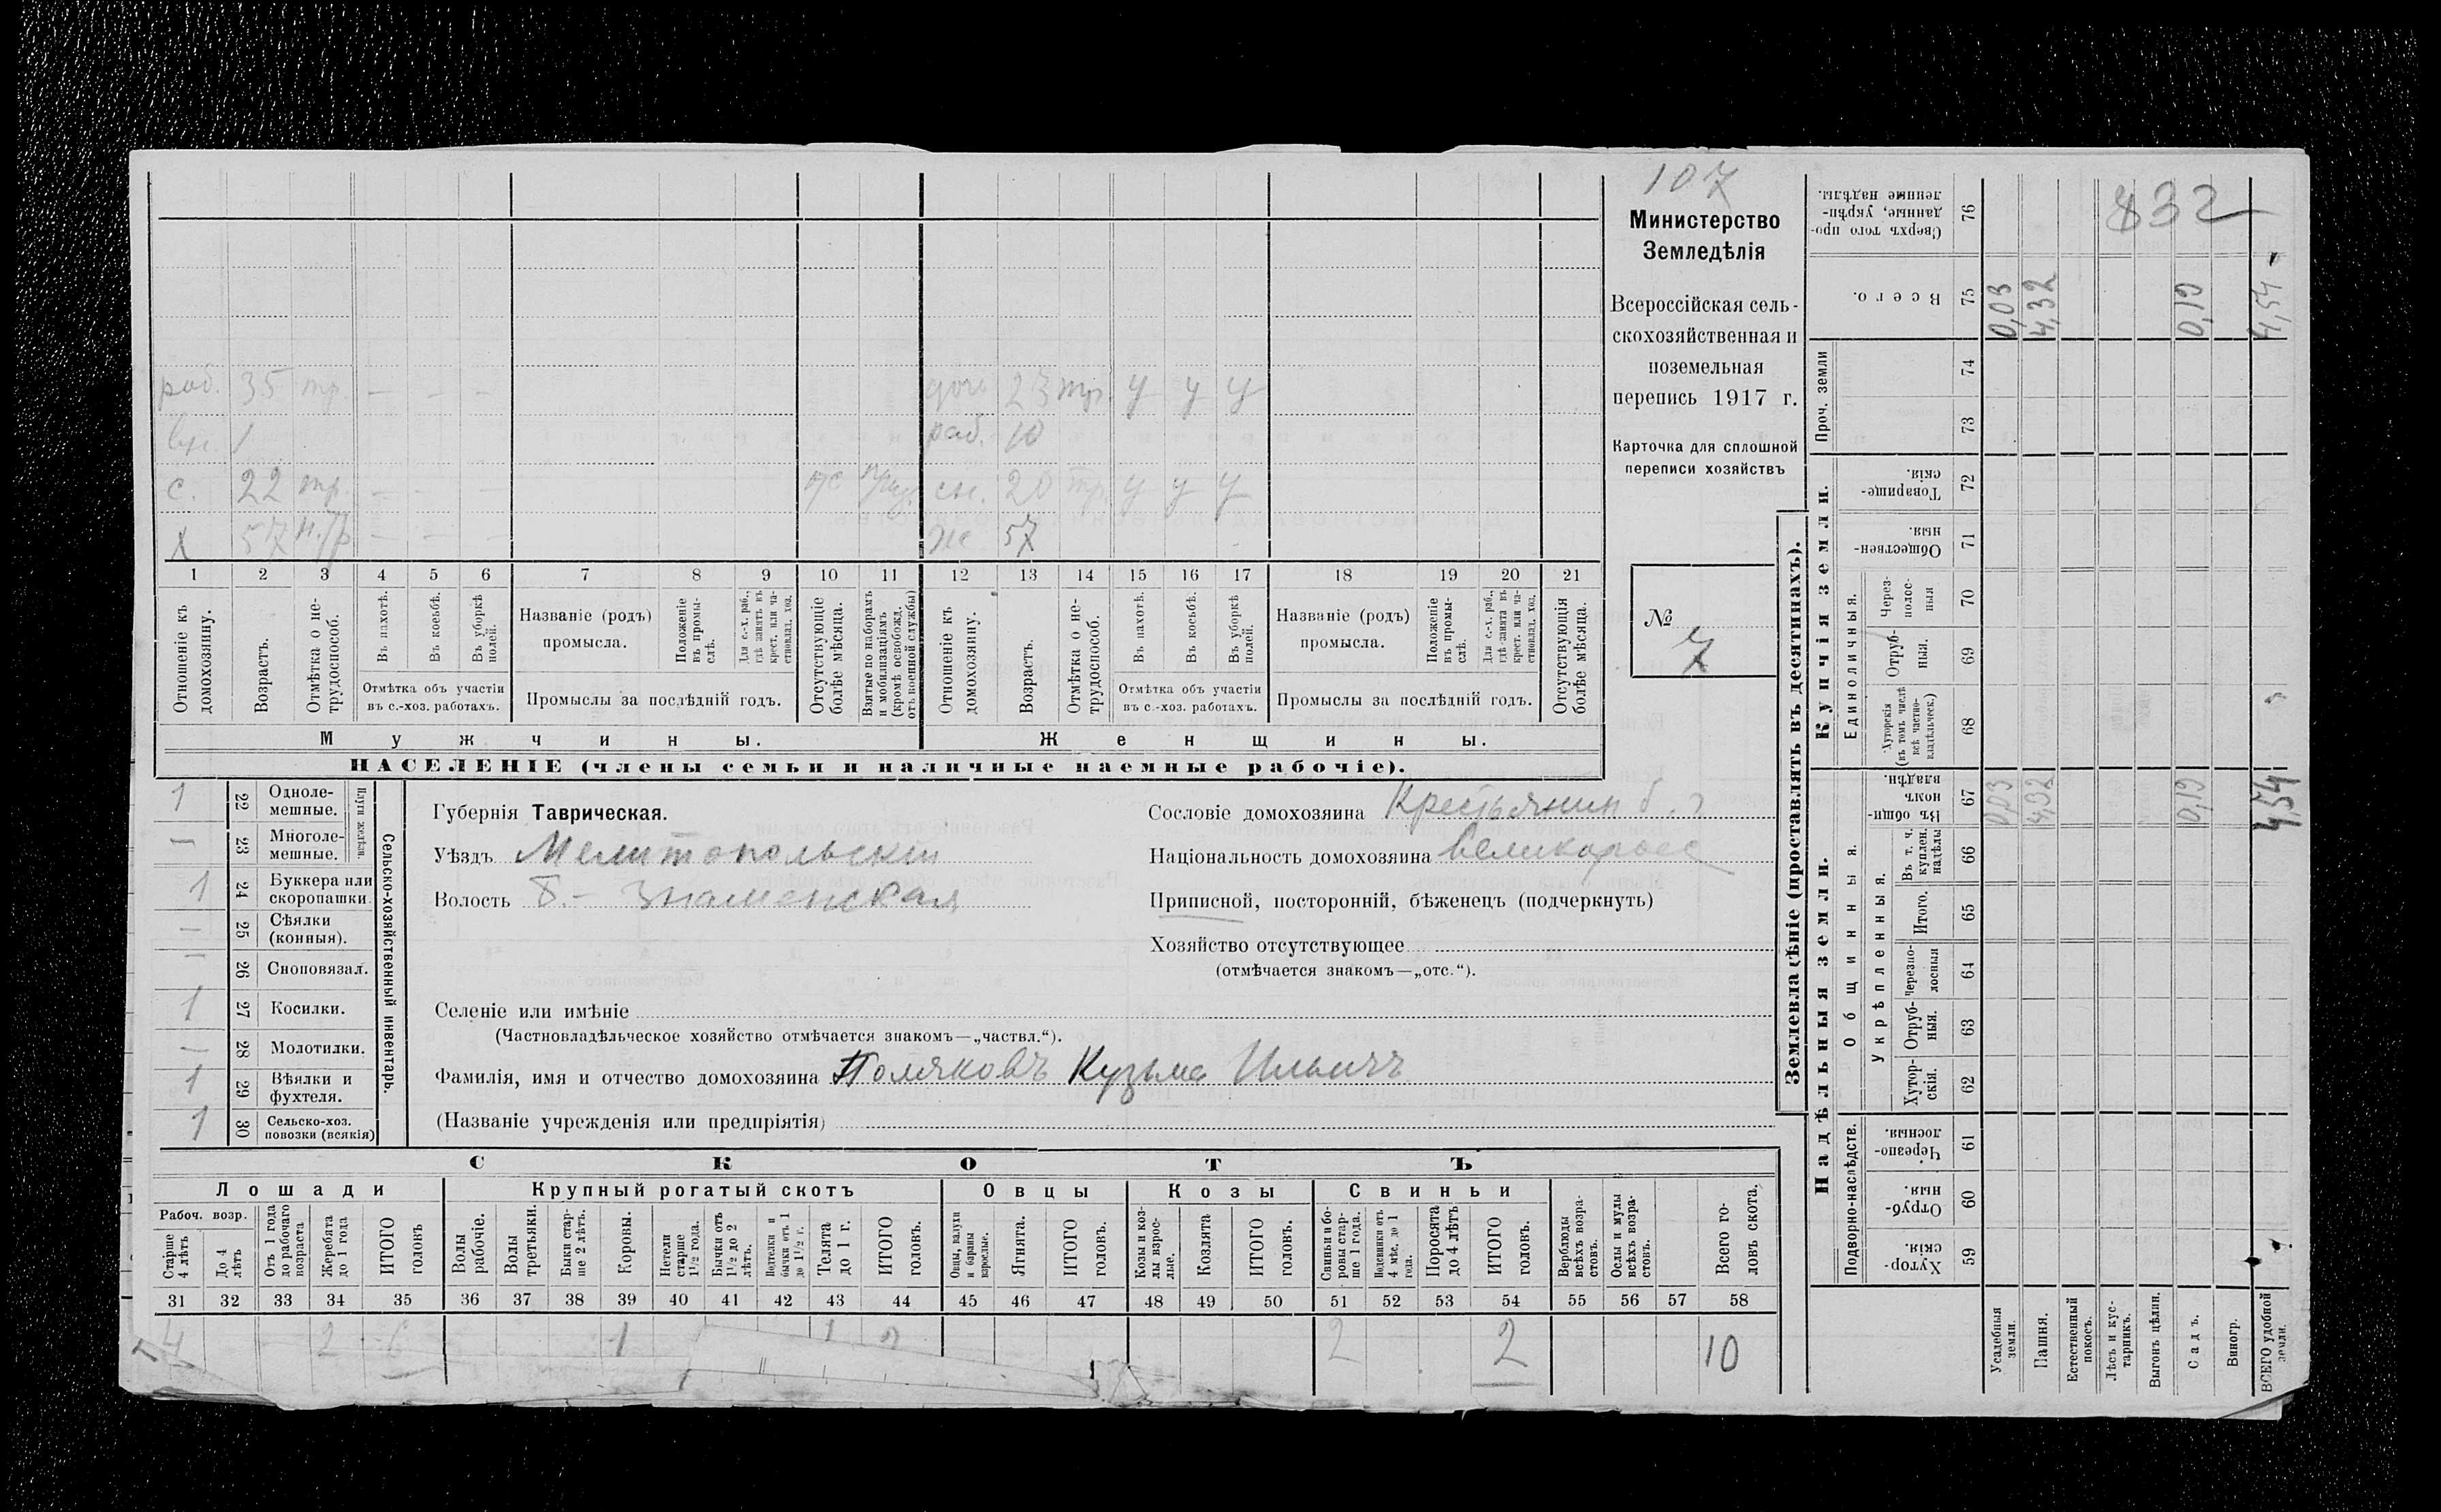 107
Министерство
Земледѣлія
Всероссійская сель-
скохозяйственная и
поземельная
перепись 1917 г.
Карточка для сплошной
переписи хозяйствъ
№ 7
раб. 35 тр. — - - доч. 23 тр. у у у
вн. 1 раб. 10
с. 22 тр. - - - сн. 20 тр. у у у
х 57 н/р - - - ж 57
1 2 3 4 5 6 7 8 9 10 11 12 13 14 15 16 17 18 19 20 21
Отношеніе къ домохозяину.
Возрастъ.
Отмѣтка о не-трудоспособ.
Въ пахотѣ.
Въ косьбѣ.
Въ уборкѣ полей.
Отмѣтка объ участіи въ с.-хоз. работахъ.
Названіе (родъ) промысла.
Положеніе въ промы-слѣ.
Для с.-х. раб., гдѣ занятъ въ крест. или ча-стновлад. хоз.
Промыслы за послѣдній годъ.
Отсутствующіе болѣе мѣсяца.
Взятые по наборамъ и мобилизаціямъ (кромѣ освобожд. отъ военной службы)
Отношеніе къ домохозяину.
Возрастъ.
Отмѣтка о не-трудоспособ.
Въ пахотѣ.
Въ косьбѣ.
Въ уборкѣ полей.
Отмѣтка объ участіи въ с.-хоз. работахъ.
Названіе (родъ) промысла.
Положеніе въ промы-слѣ.
Для с.-х. раб., гдѣ занята въ крест. или ча-стновлад. хоз.
Промыслы за послѣдній годъ.
Отсутствующія болѣе мѣсяца.
Мужчины. Женщины.
НАСЕЛЕНІЕ (члены семьи и наличные наемные рабочіе).
Сельско-хозяйственный инвентарь.
Плуги желѣзн.
1 22 Одноле-мешные.
— 23 Многоле-мешные.
1 24 Буккера или скоропашки.
— 25 Сѣялки (конныя).
— 26 Сноповязал.
1 27 Косилки.
— 28 Молотилки.
1 29 Вѣялки и фухтеля.
1 30 Сельско-хоз. повозки (всякія)
Губернія Таврическая.
Уѣздъ Мелитопольскій
Волость Б.- Знаменская
Сословіе домохозяина Крестьянин
Національность домохозяина великоросс
Приписной, посторонній, бѣженецъ (подчеркнуть)
Хозяйство отсутствующее
(отмѣчается знакомъ—„отс.“).
Селеніе или имѣніе
(Частновладѣльческое хозяйство отмѣчается знакомъ—„частвл.“).
Фамилія, имя и отчество домохозяина Поляковъ Кузьма Ильичъ
(Названіе учрежденія или предпріятія)
СКОТЪ
Лошади Крупный рогатый скотъ Овцы Козы Свиньи
Рабоч. возр.
Старше 4 лѣтъ
До 4 лѣтъ
Отъ 1 года до рабочаго возраста
Жеребята до 1 года
ИТОГО головъ
Волы рабочіе.
Волы третьяки.
Быки стар-ше 2 лѣтъ.
Коровы.
Нетели старше 1½ года.
Бычки отъ 1½ до 2 лѣтъ.
Подтелки и бычки отъ 1 до 1½ г.
Телята до 1 г.
ИТОГО головъ.
Овцы, валухи и бараны взрослые.
Ягнята.
ИТОГО головъ.
Козы и коз-лы взрос-лые.
Козлята
ИТОГО головъ.
Свиньи и бо-ровы стар-ше 1 года.
Подсвинки отъ 4 мѣс. до 1 года.
Поросята до 4 лѣтъ
ИТОГО головъ.
Верблюды всѣхъ возра-стовъ.
Ослы и мулы всѣхъ возра-стовъ.
Всего го-ловъ скота.
31 32 33 34 35 36 37 38 39 40 41 42 43 44 45 46 47 48 49 50 51 52 53 54 55 56 57 58
4 2 6 1 1 2 2 2 10
Землевладѣніе (проставлять въ десятинахъ).
Надѣльныя земли.
Купчія земли.
Проч. земли
Подворно-наслѣдств.
Общинныя.
Укрѣпленныя.
Единоличныя.
Хутор-скія. 59
Отруб-ныя. 60
Черезпо-лосныя. 61
Хутор-скія. 62
Отруб-ныя. 63
Черезпо-лосныя 64
Итого. 65
Въ т. ч. куплен. надѣлы 66
Въ общин-номъ владѣн. 67
Хуторскія (въ томъ числѣ всѣ частно-владѣльческ.) 68
Отруб-ныя. 69
Через-полос-ныя 70
Обществен-ныя. 71
Товарище-скія. 72
73
74
Всего. 75
Сверхъ того про-данные, укрѣп-ленные надѣлы. 76
832
Усадебныя земли. 0,03 0,03
Пашня. 4,32 4,32
Естественный покосъ.
Лѣсъ и кус-тарникъ.
Выгонъ цѣлин.
Садъ. 0,19 0,19
Виногр.
ВСЕГО удобной земли. 4,54 4,54